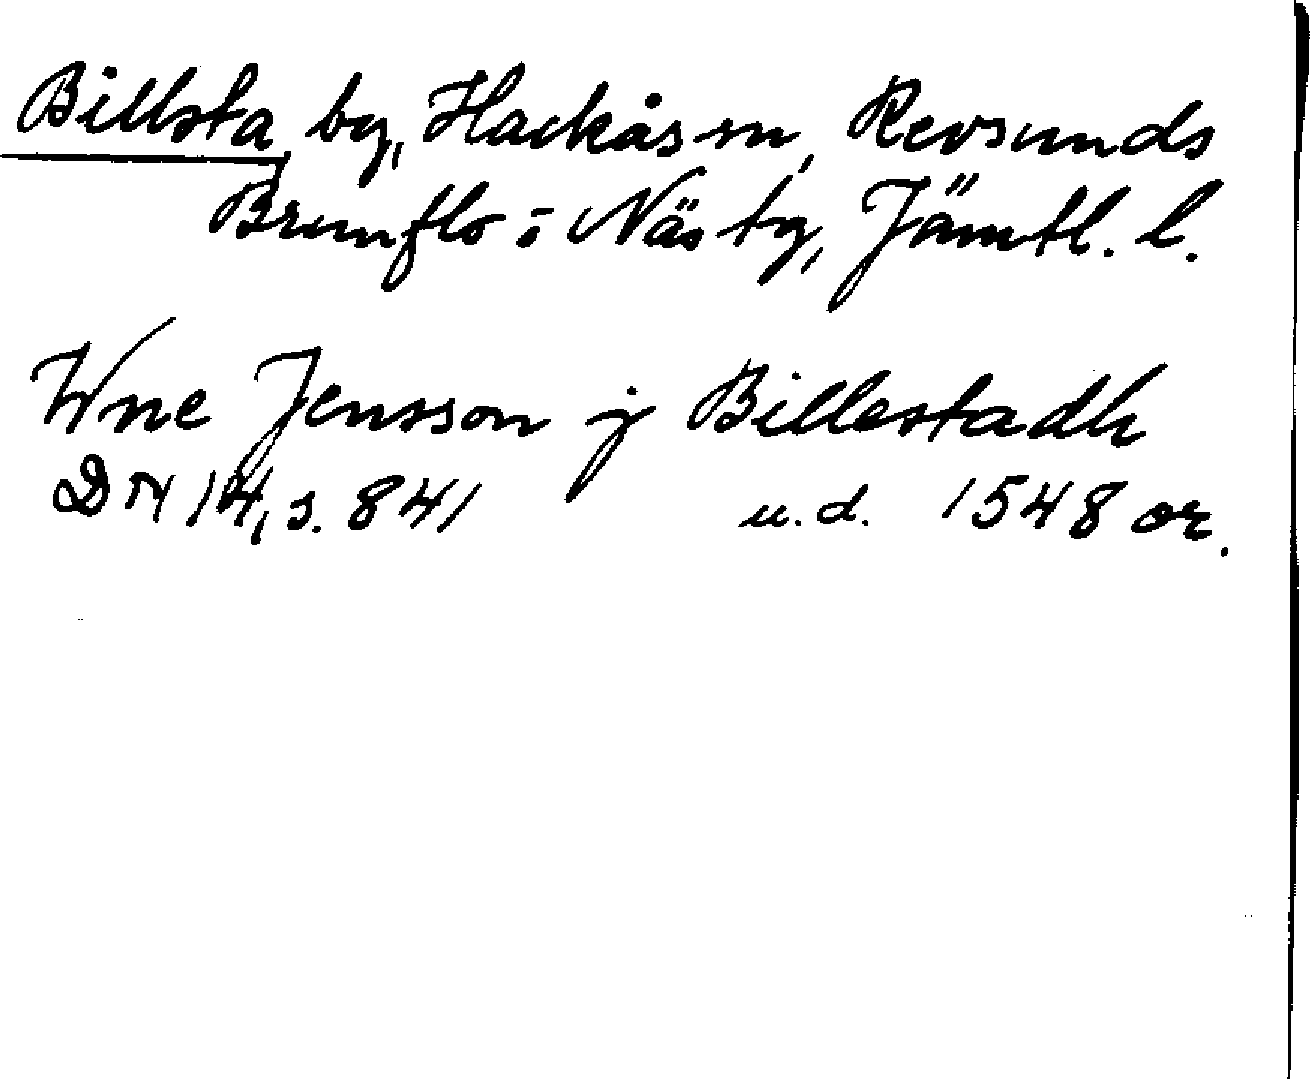 Billsta, by, Hackås sn, Revsunds
Brunflo o Näs tg, Jämtl. l.
Wne Jensson j Billestadh
DN 14, s. 841 u.d. 1548 or.